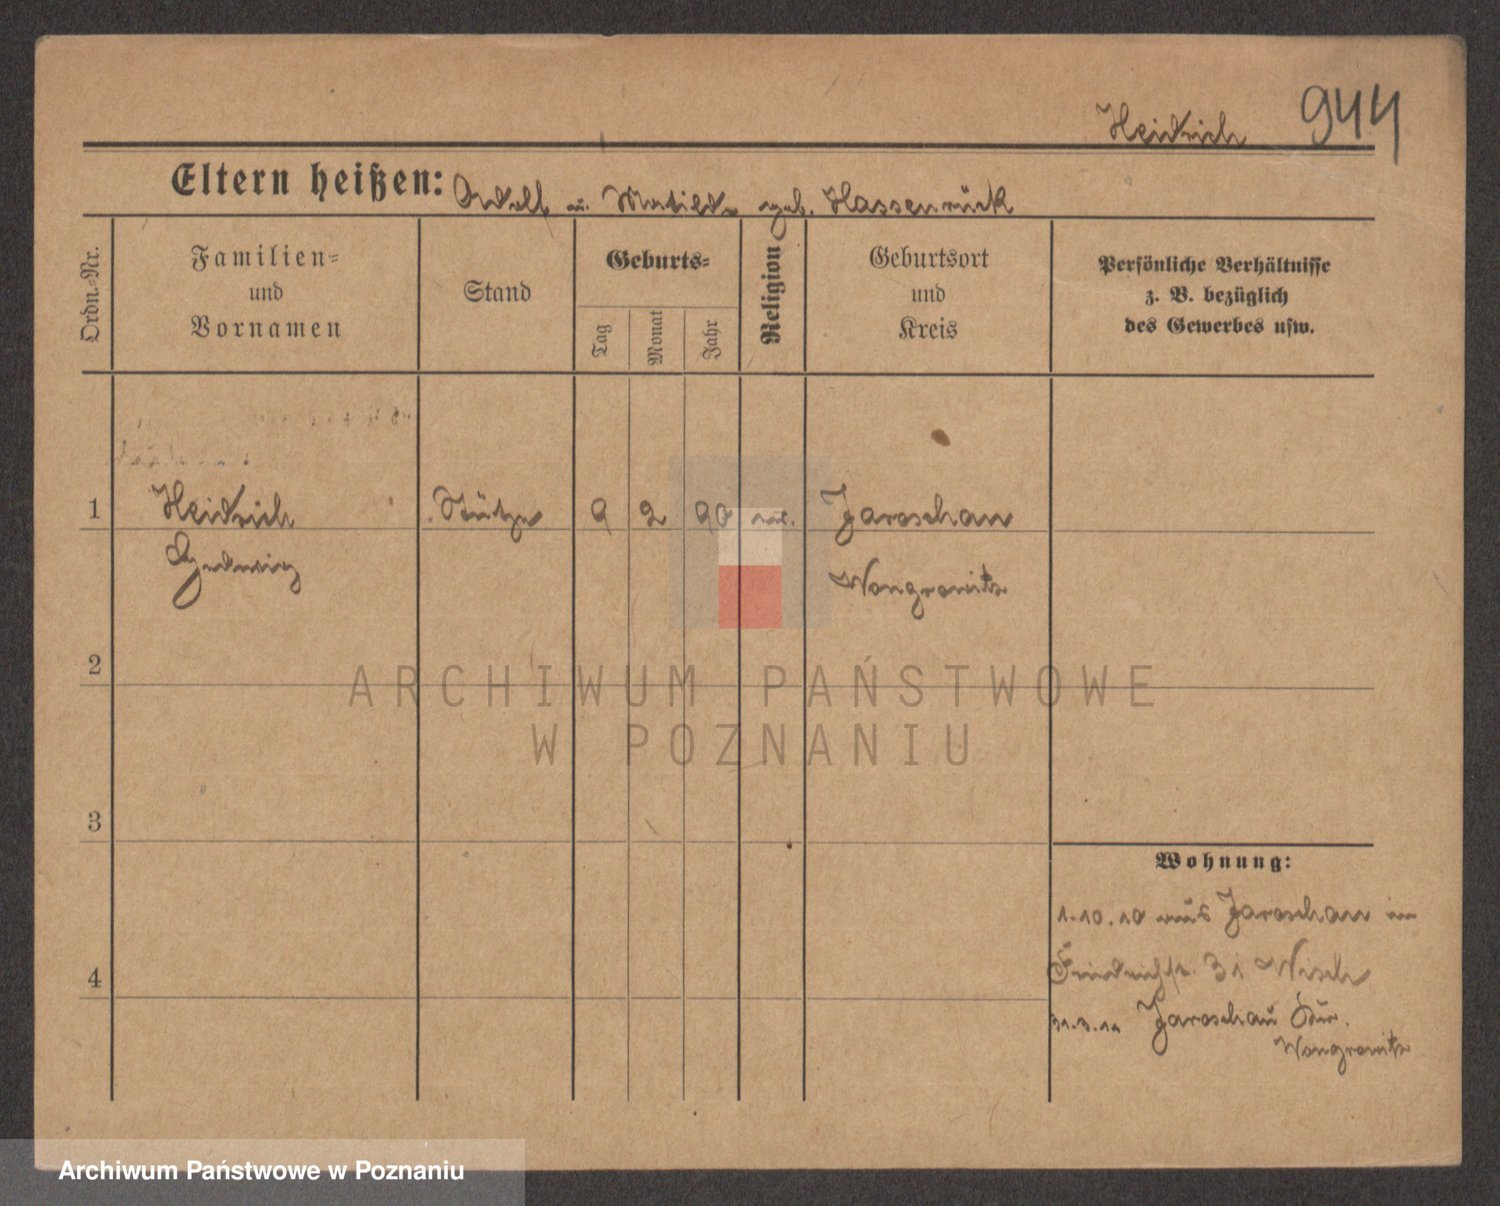 Heidrich 944
Eltern heißen: Adolf u. Matilde geb. Hassenrück
Ordn.-Nr.
Familien-
und
Vornamen
Stand
Geburts-
Tag
Monat
Jahr
Religion
Geburtsort
und
Kreis
Persönliche Verhältnisse
z. B. bezüglich
des Gewerbes usw.
1 Heidrich Stütze 9 2 90 ev. Jaroschau
Hedwig Wongrowitz
2
ARCHIWUM PAŃSTWOWE
W POZNANIU
3
Wohnung:
1.10.10 aus Jaroschau in
Friedrichst. 31 Wisch
4
31.3.11 Jaroschau Kr.
Wongrowitz
Archiwum Państwowe w Poznaniu